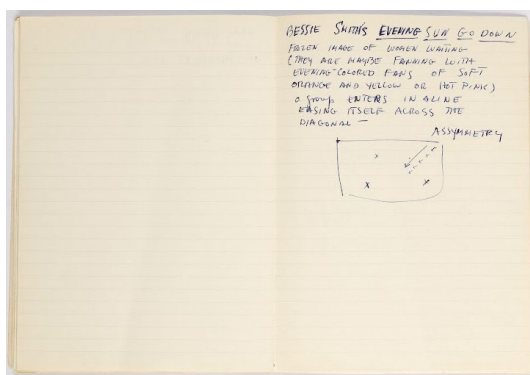 BESSIE SMITH'S EVENING SUN GO DOWN
FROZEN IMAGE OF WOMEN WAITING
(THEY ARE MAYBE FANNING WITH
EVENING-COLORED FANS OF SOFT
ORANGE AND YELLOW OR HOT PINK)
a group ENTERS IN A LINE
EASING ITSELF ACROSS THE
DIAGONAL —
ASSYMMETRY
x
x x